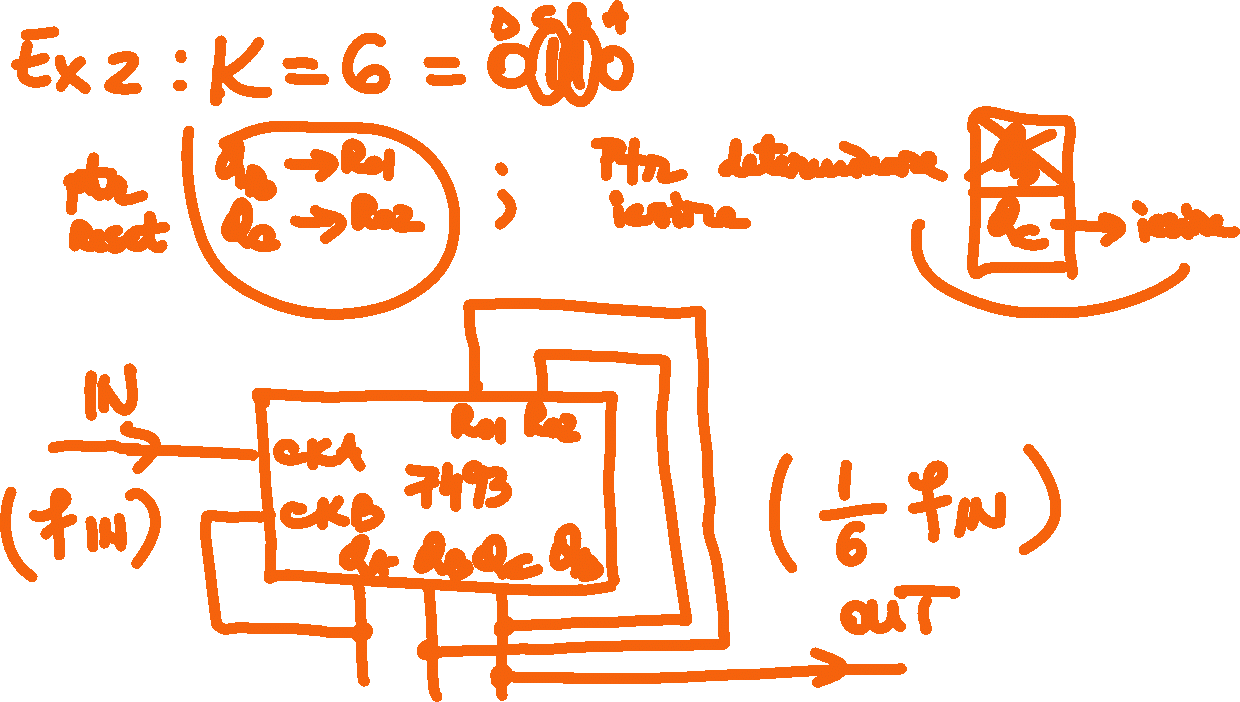 Ex 2 : K = 6 = 0110
D C B A
ptr Reset
QB → R01
QC → R02
;
Ptr determinare iesire
QD
QC → iesire
IN
(fIN)
CKA
CKB
7493
R01 R02
QA QB QC QD
(1/6 fIN)
OUT